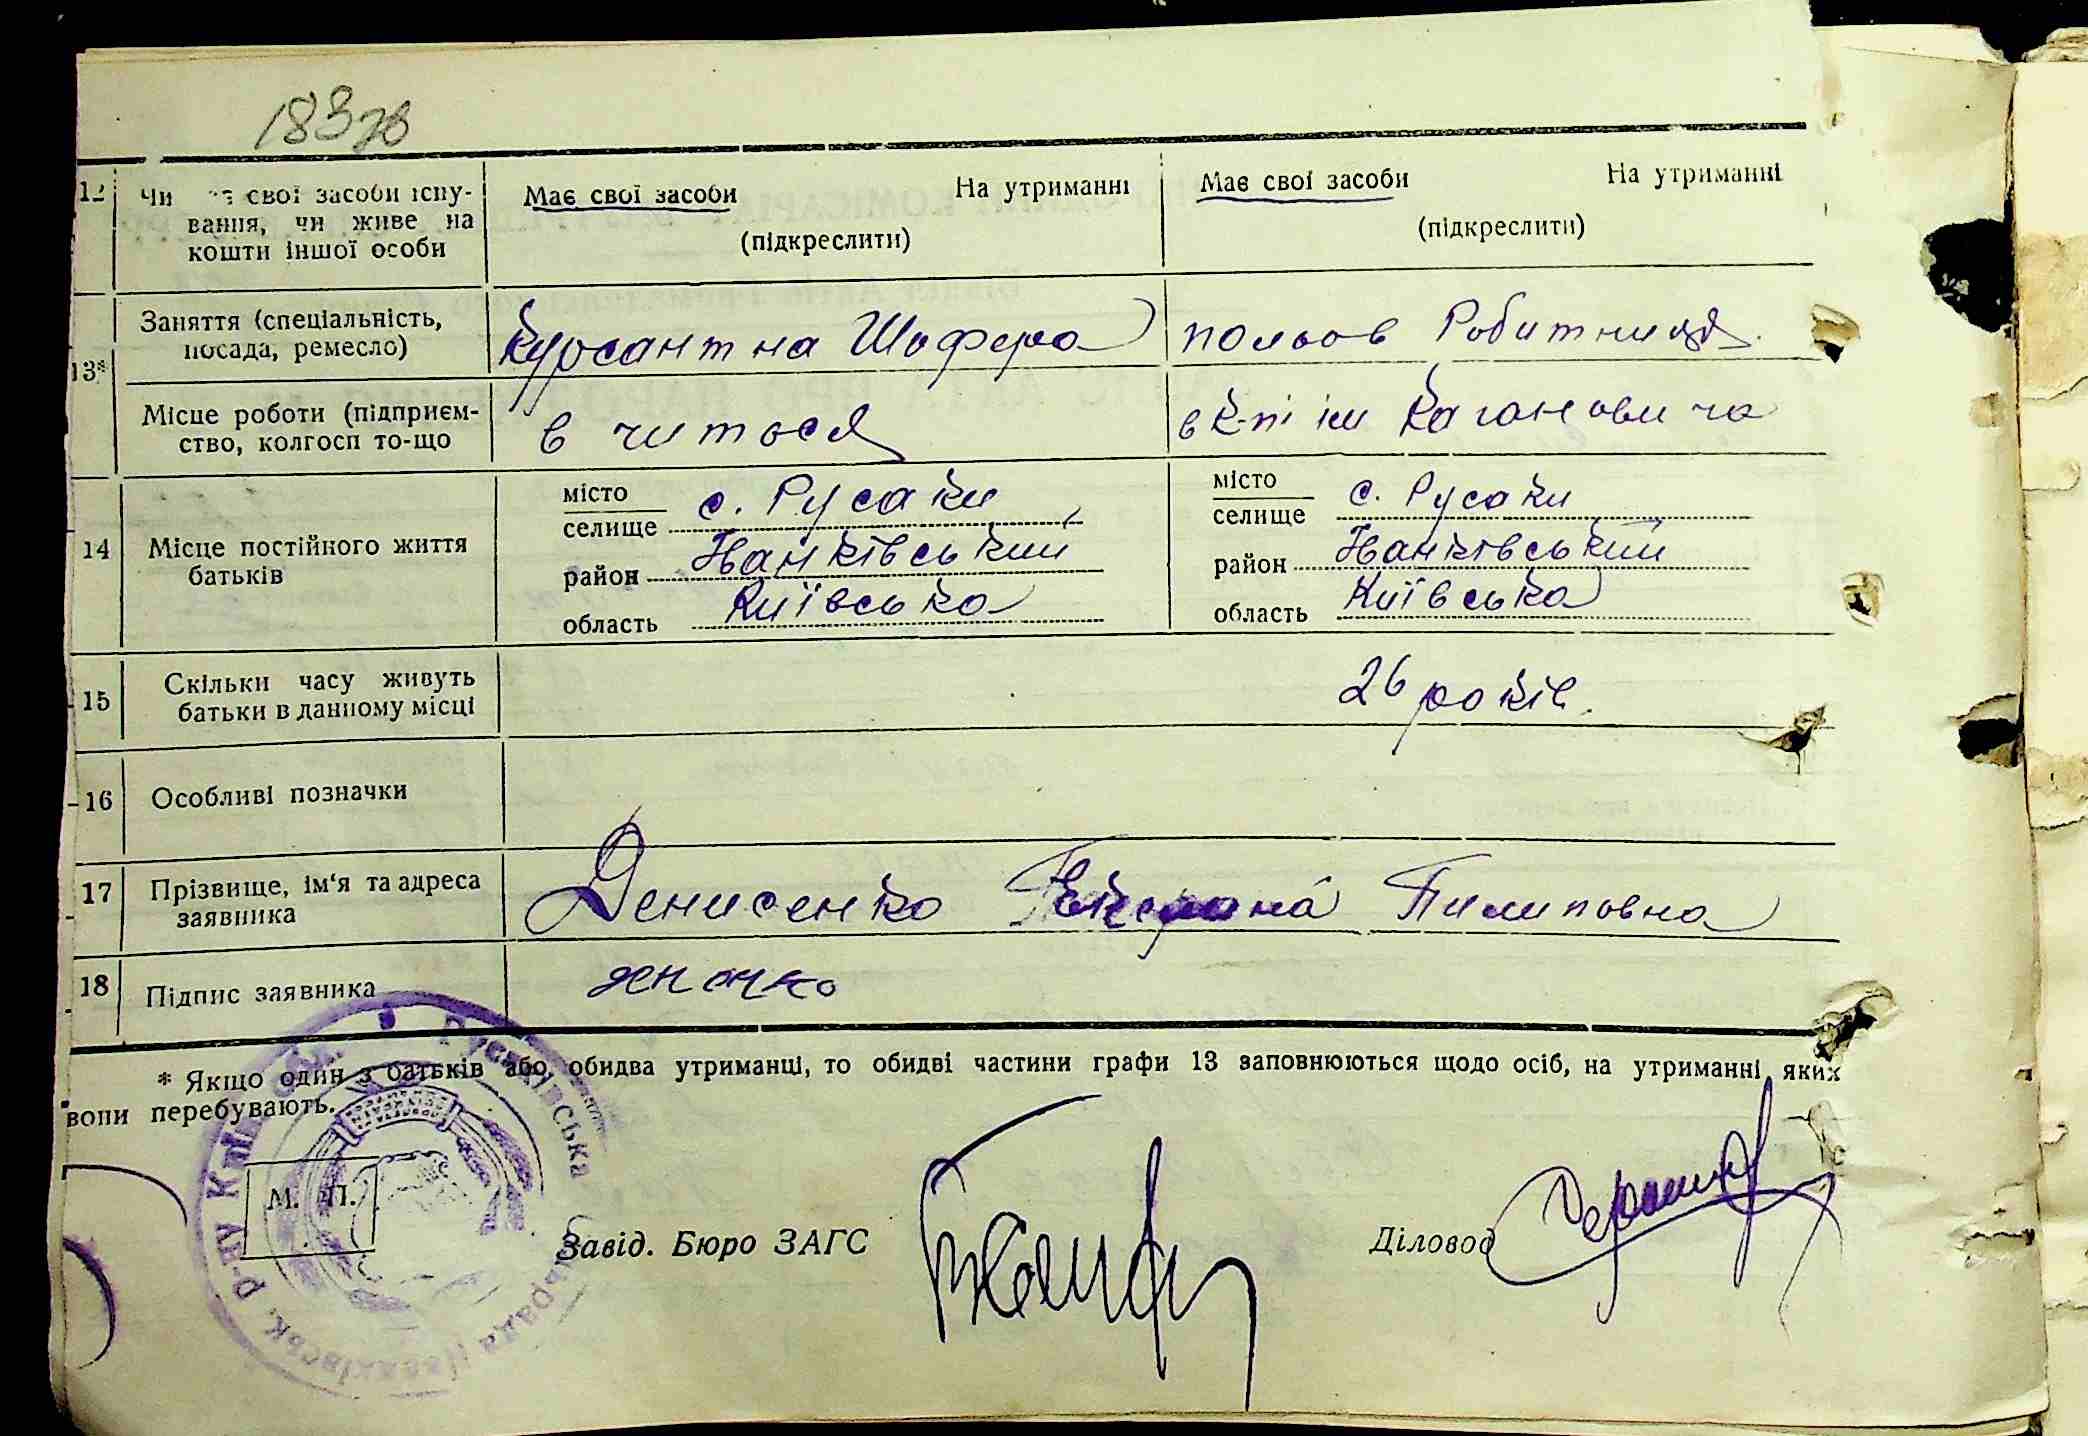 183зв
12 Чи має свої засоби існу- Має свої засоби На утриманні Має свої засоби На утриманні
вання, чи живе на (підкреслити) (підкреслити)
кошти іншої особи
13* Заняття (спеціальність, Курсант на Шофера польов Робитниця
посада, ремесло)
Місце роботи (підприєм- вчиться в к-пі ім Кагановича
ство, колгосп то-що
14 Місце постійного життя батьків
місто селище с. Русаки місто селище с. Русаки
район Іванківський район Іванківський
область Київська область Київська
15 Скільки часу живуть 26 років.
батьки в данному місці
16 Особливі позначки
17 Прізвище, ім'я та адреса Денисенко Пилиповна
заявника
18 Підпис заявника
* Якщо один з батьків або обидва утриманці, то обидві частини графи 13 заповнюються щодо осіб, на утриманні яких
вони перебувають.
М. П.
Завід. Бюро ЗАГС Діловод
Русаківська сільрада Іванківськ. р-ну Київськ. обл.